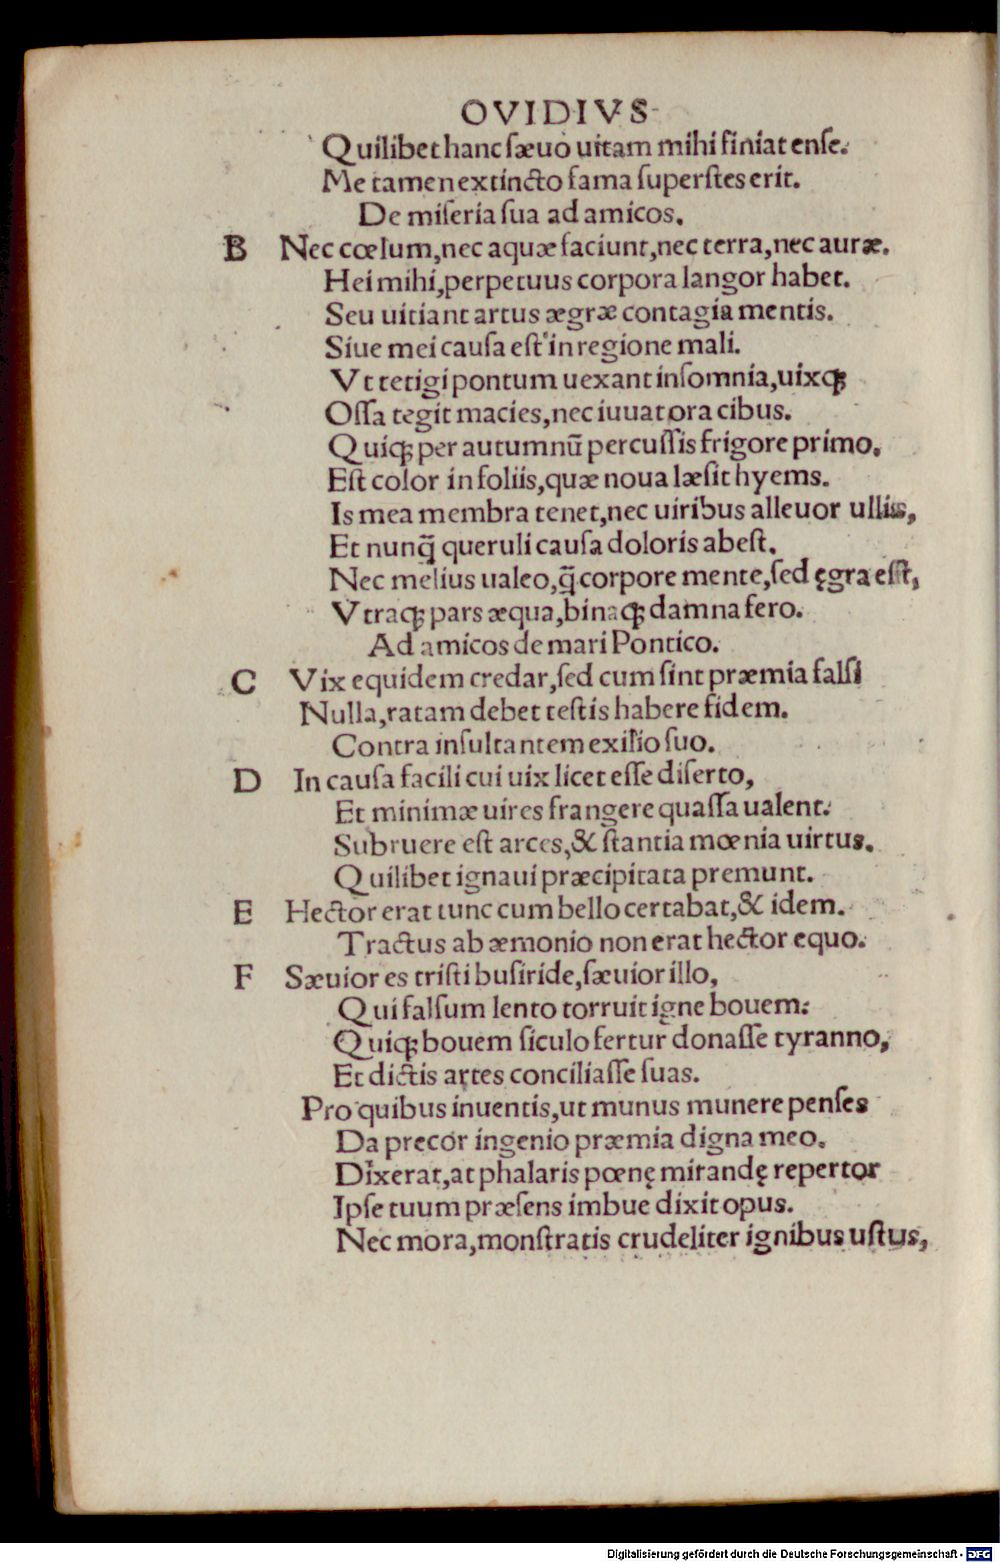 OVIDIVS
Quilibet hanc sæuo uitam mihi finiat ense.
Me tamen extincto fama superstes erit.
De miseria sua ad amicos.
B Nec cœlum, nec aquæ faciunt, nec terra, nec auræ.
Hei mihi, perpetuus corpora langor habet.
Seu uitiant artus ægræ contagia mentis.
Siue mei causa est in regione mali.
Vt tetigi pontum uexant insomnia, uixqꝫ
Ossa tegit macies, nec iuuat ora cibus.
Quiqꝫ per autumnũ percussis frigore primo.
Est color in foliis, quæ noua læsit hyems.
Is mea membra tenet, nec uiribus alleuor ullis,
Et nunq̃ queruli causa doloris abest.
Nec melius ualeo, q̃ corpore mente, sed ęgra est,
Vtraqꝫ pars æqua, binaqꝫ damna fero.
Ad amicos de mari Pontico.
C Vix equidem credar, sed cum sint præmia falsi
Nulla, ratam debet testis habere fidem.
Contra insultantem exilio suo.
D In causa facili cui uix licet esse diserto,
Et minimæ uires frangere quassa ualent.
Subruere est arces, & stantia mœnia uirtus.
Quilibet ignaui præcipitata premunt.
E Hector erat tunc cum bello certabat, & idem.
Tractus ab æmonio non erat hector equo.
F Sæuior es tristi busiride, sæuior illo,
Qui falsum lento torruit igne bouem.
Quiqꝫ bouem siculo fertur donasse tyranno,
Et dictis artes conciliasse suas.
Pro quibus inuentis, ut munus munere penses
Da precor ingenio præmia digna meo.
Dixerat, at phalaris pœnę mirandę repertor
Ipse tuum præsens imbue dixit opus.
Nec mora, monstratis crudeliter ignibus ustus,
Digitalisierung gefördert durch die Deutsche Forschungsgemeinschaft - DFG